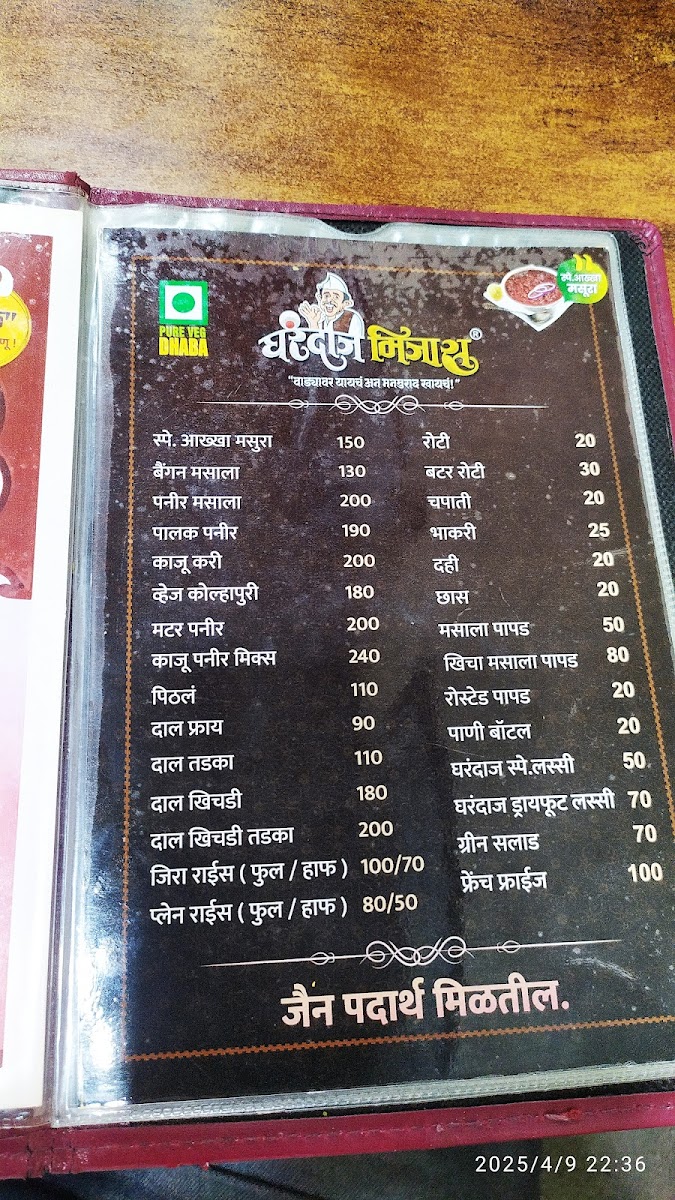 स्पे.आख्खा
मसूरा
PURE VEG
DHABA
घरंदाज मिजास ®
"वाड्यावर यायचं अन मनमुराद खायचं!"
स्पे. आख्खा मसुरा 150
बैंगन मसाला 130
पनीर मसाला 200
पालक पनीर 190
काजू करी 200
व्हेज कोल्हापुरी 180
मटर पनीर 200
काजू पनीर मिक्स 240
पिठलं 110
दाल फ्राय 90
दाल तडका 110
दाल खिचडी 180
दाल खिचडी तडका 200
जिरा राईस ( फुल / हाफ ) 100/70
प्लेन राईस ( फुल / हाफ ) 80/50
रोटी 20
बटर रोटी 30
चपाती 20
भाकरी 25
दही 20
छास 20
मसाला पापड 50
खिचा मसाला पापड 80
रोस्टेड पापड 20
पाणी बॉटल 20
घरंदाज स्पे.लस्सी 50
घरंदाज ड्रायफूट लस्सी 70
ग्रीन सलाड 70
फ्रेंच फ्राईज 100
जैन पदार्थ मिळतील.
2025/4/9 22:36